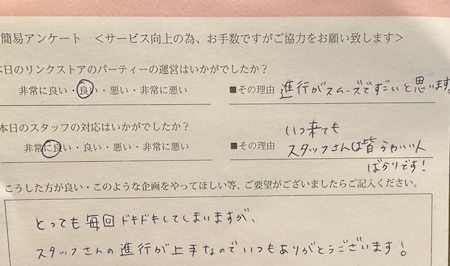 簡易アンケート ＜サービス向上の為、お手数ですがご協力をお願い致します＞
本日のリンクストアのパーティーの運営はいかがでしたか？
非常に良い・良い・悪い・非常に悪い ■その理由 進行がスムーズですごいと思います。
本日のスタッフの対応はいかがでしたか？
いつ来ても
非常に良い・良い・悪い・非常に悪い ■その理由 スタッフさんは皆 いい人
ばかりです！
こうした方が良い・このような企画をやってほしい等、ご要望がございましたらご記入ください。
とっても毎回ドキドキしてしまいますが、
スタッフさんの進行が上手なのでいつもありがとうございます！